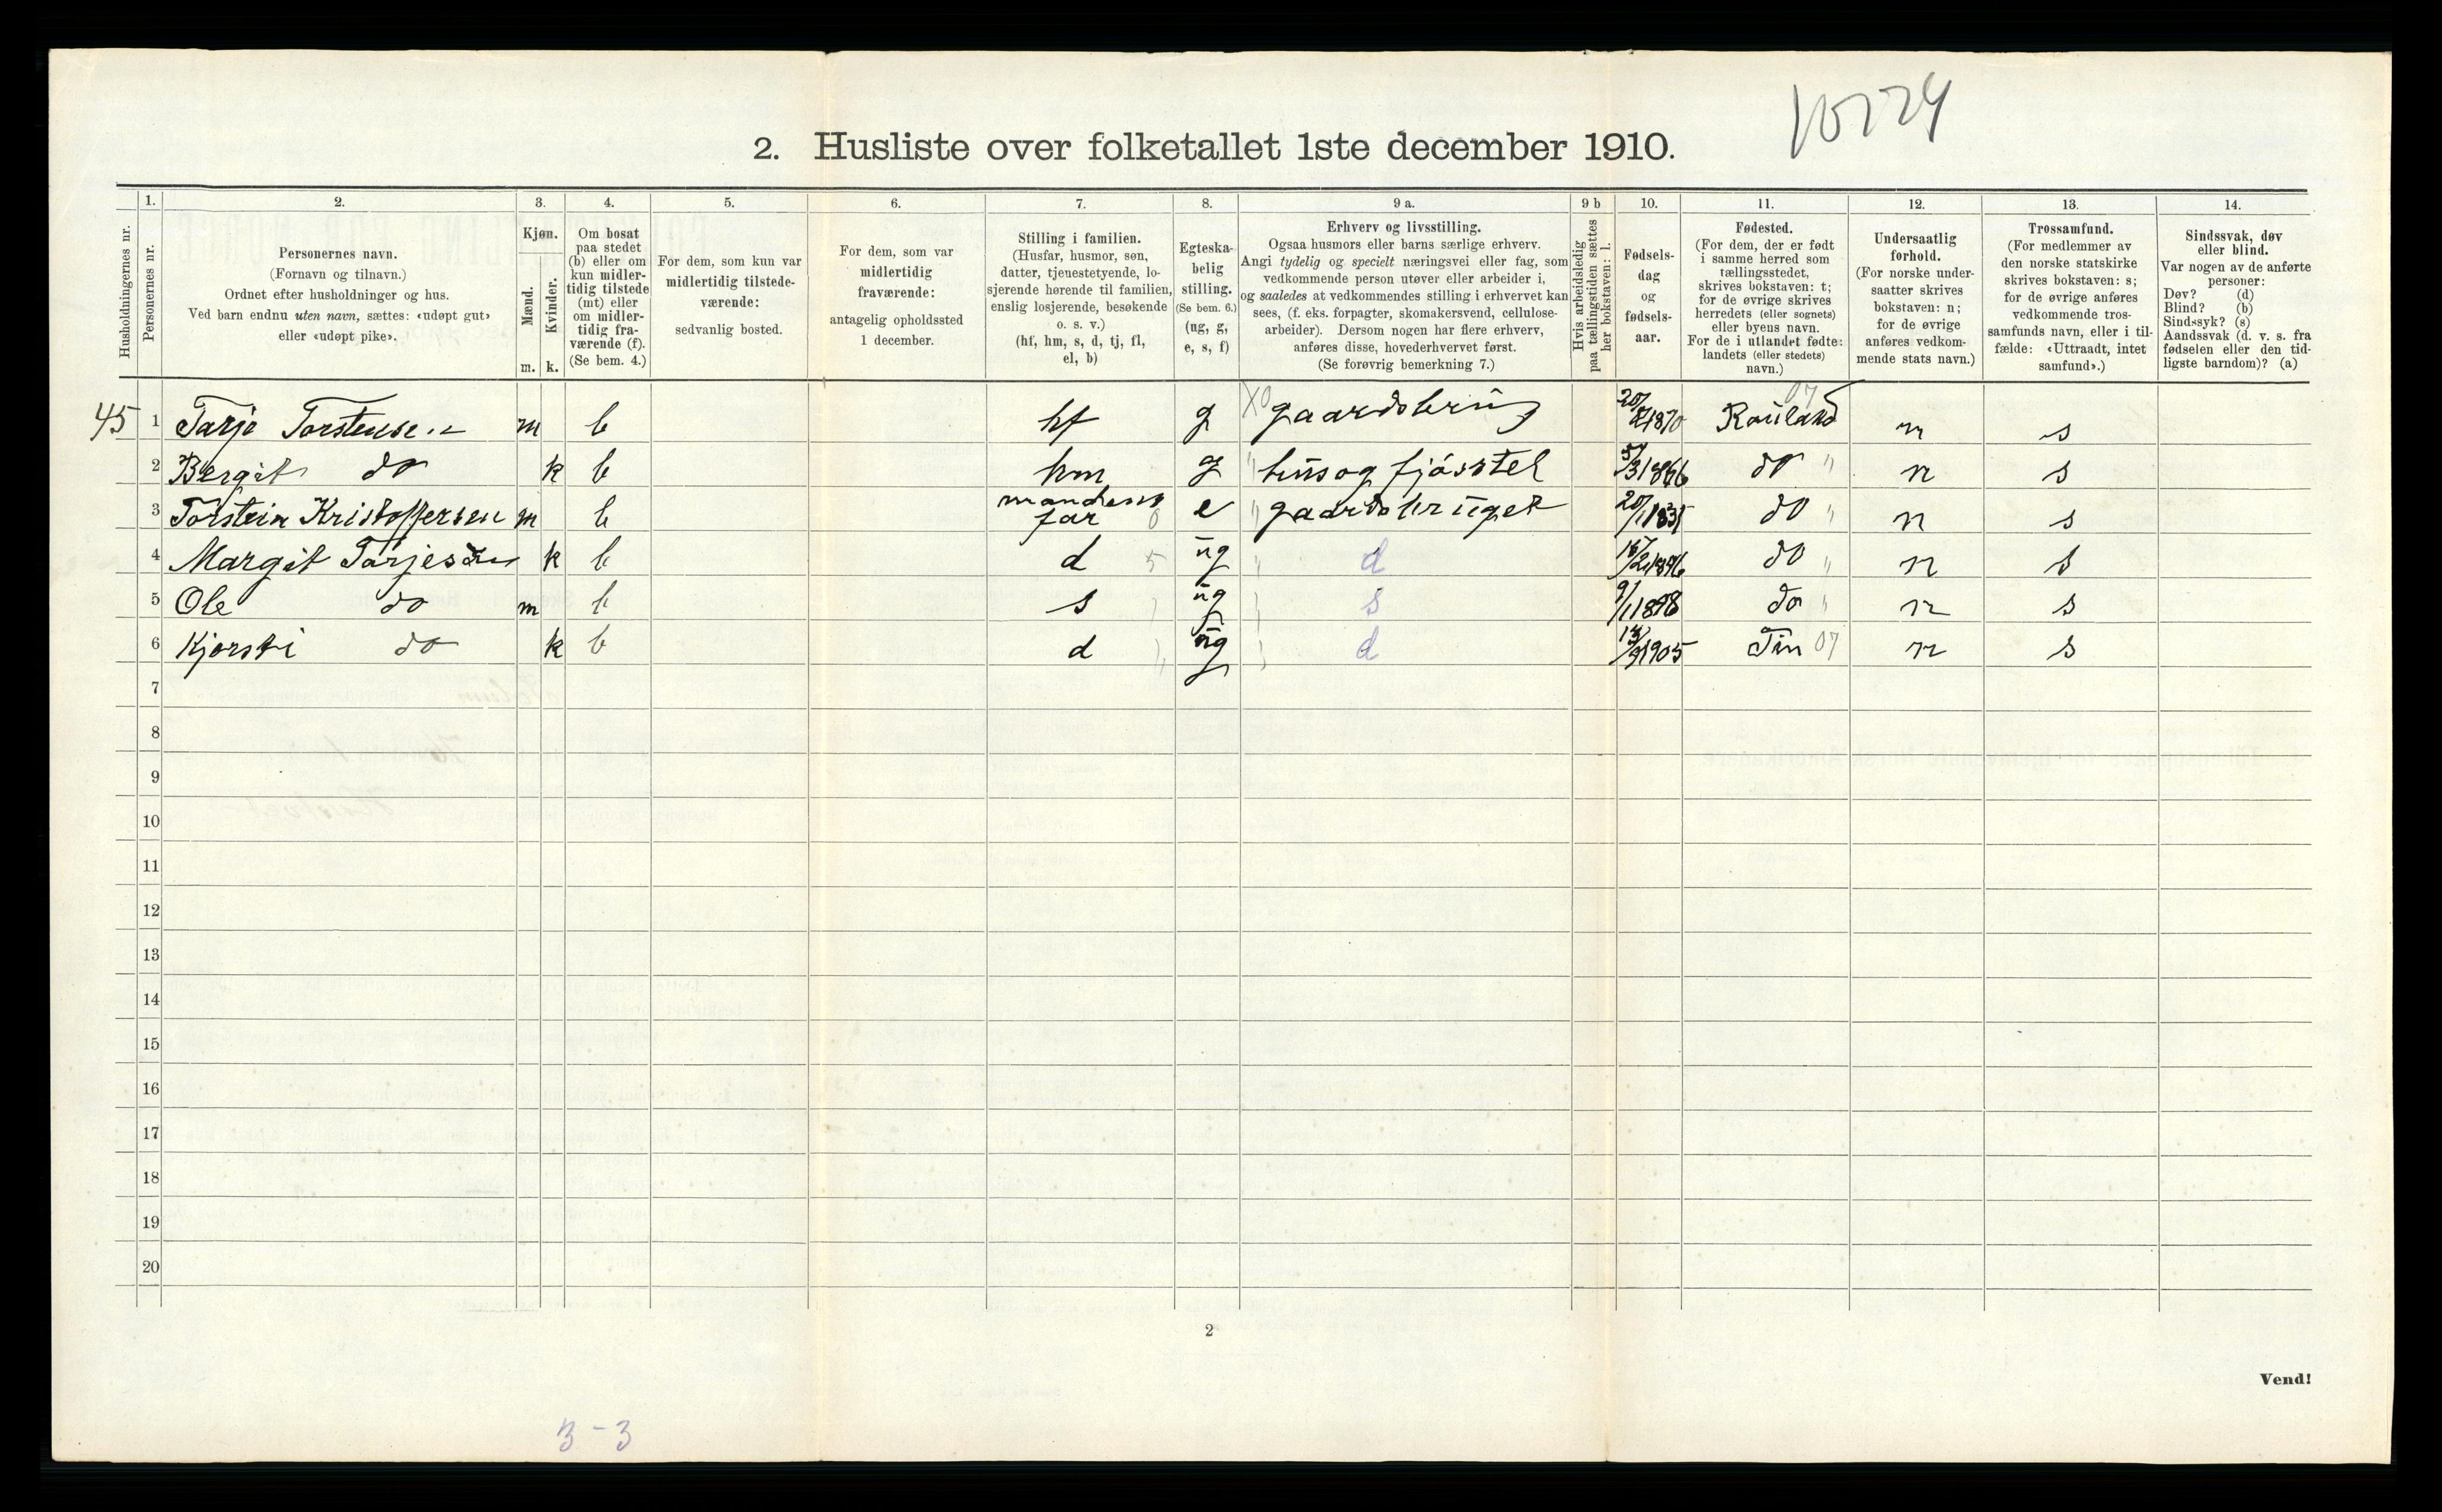 10224
2. Husliste over folketallet 1ste december 1910.
1. 2. 3. 4. 5. 6. 7. 8. 9 a. 9 b 10. 11. 12. 13. 14.
Husholdningernes nr.
Personernes nr.
Personernes navn.
(Fornavn og tilnavn.)
Ordnet efter husholdninger og hus.
Ved barn endnu uten navn, sættes: «udøpt gut»
eller «udøpt pike».
Kjøn.
Mænd.
Kvinder.
m. k.
Om bosat
paa stedet
(b) eller om
kun midler-
tidig tilstede
(mt) eller
om midler-
tidig fra-
værende (f).
(Se bem. 4.)
For dem, som kun var
midlertidig tilstede-
værende:
sedvanlig bosted.
For dem, som var
midlertidig
fraværende:
antagelig opholdssted
1 december.
Stilling i familien.
(Husfar, husmor, søn,
datter, tjenestetyende, lo-
sjerende hørende til familien,
enslig losjerende, besøkende
o. s. v.)
(hf, hm, s, d, tj, fl,
el, b)
Egteska-
belig
stilling.
(Se bem. 6.)
(ug, g,
e, s, f)
Erhverv og livsstilling.
Ogsaa husmors eller barns særlige erhverv.
Angi tydelig og specielt næringsvei eller fag, som
vedkommende person utøver eller arbeider i,
og saaledes at vedkommendes stilling i erhvervet kan
sees, (f. eks. forpagter, skomakersvend, cellulose-
arbeider). Dersom nogen har flere erhverv,
anføres disse, hovederhvervet først.
(Se forøvrig bemerkning 7.)
Hvis arbeidsledig
paa tællingstiden sættes
her bokstaven: l.
Fødsels-
dag
og
fødsels-
aar.
Fødested.
(For dem, der er født
i samme herred som
tællingsstedet,
skrives bokstaven: t;
for de øvrige skrives
herredets (eller sognets)
eller byens navn.
For de i utlandet fødte:
landets (eller stedets)
navn.)
Undersaatlig
forhold.
(For norske under-
saatter skrives
bokstaven: n;
for de øvrige
anføres vedkom-
mende stats navn.)
Trossamfund.
(For medlemmer av
den norske statskirke
skrives bokstaven: s;
for de øvrige anføres
vedkommende tros-
samfunds navn, eller i til-
fælde: «Uttraadt, intet
samfund».)
Sindssvak, døv
eller blind.
Var nogen av de anførte
personer:
Døv? (d)
Blind? (b)
Sindssyk? (s)
Aandssvak (d. v. s. fra
fødselen eller den tid-
ligste barndom)? (a)
45 1 Tarje Torstensen m b hf g X0 gaardsbrug 1870 Rauland 07 n s
2 Bergit do k b hm g " hus og fjösstel 5/3 1866 do " n s
3 Torstein Kristoffersen m b mandens far 0 e " gaardsbruget 20/1 1835 do " n s
4 Margit Tarjesen k b d 5 ug " d 15/2 1896 do " n s
5 Ole do m b s " ug " s 9/1 1898 do " n s
6 Kjorsti do k b d " ug " d 13/9 1905 Tin 07 n s
7
8
9
10
11
12
13
14
15
16
17
18
19
20
2
Vend!
3-3